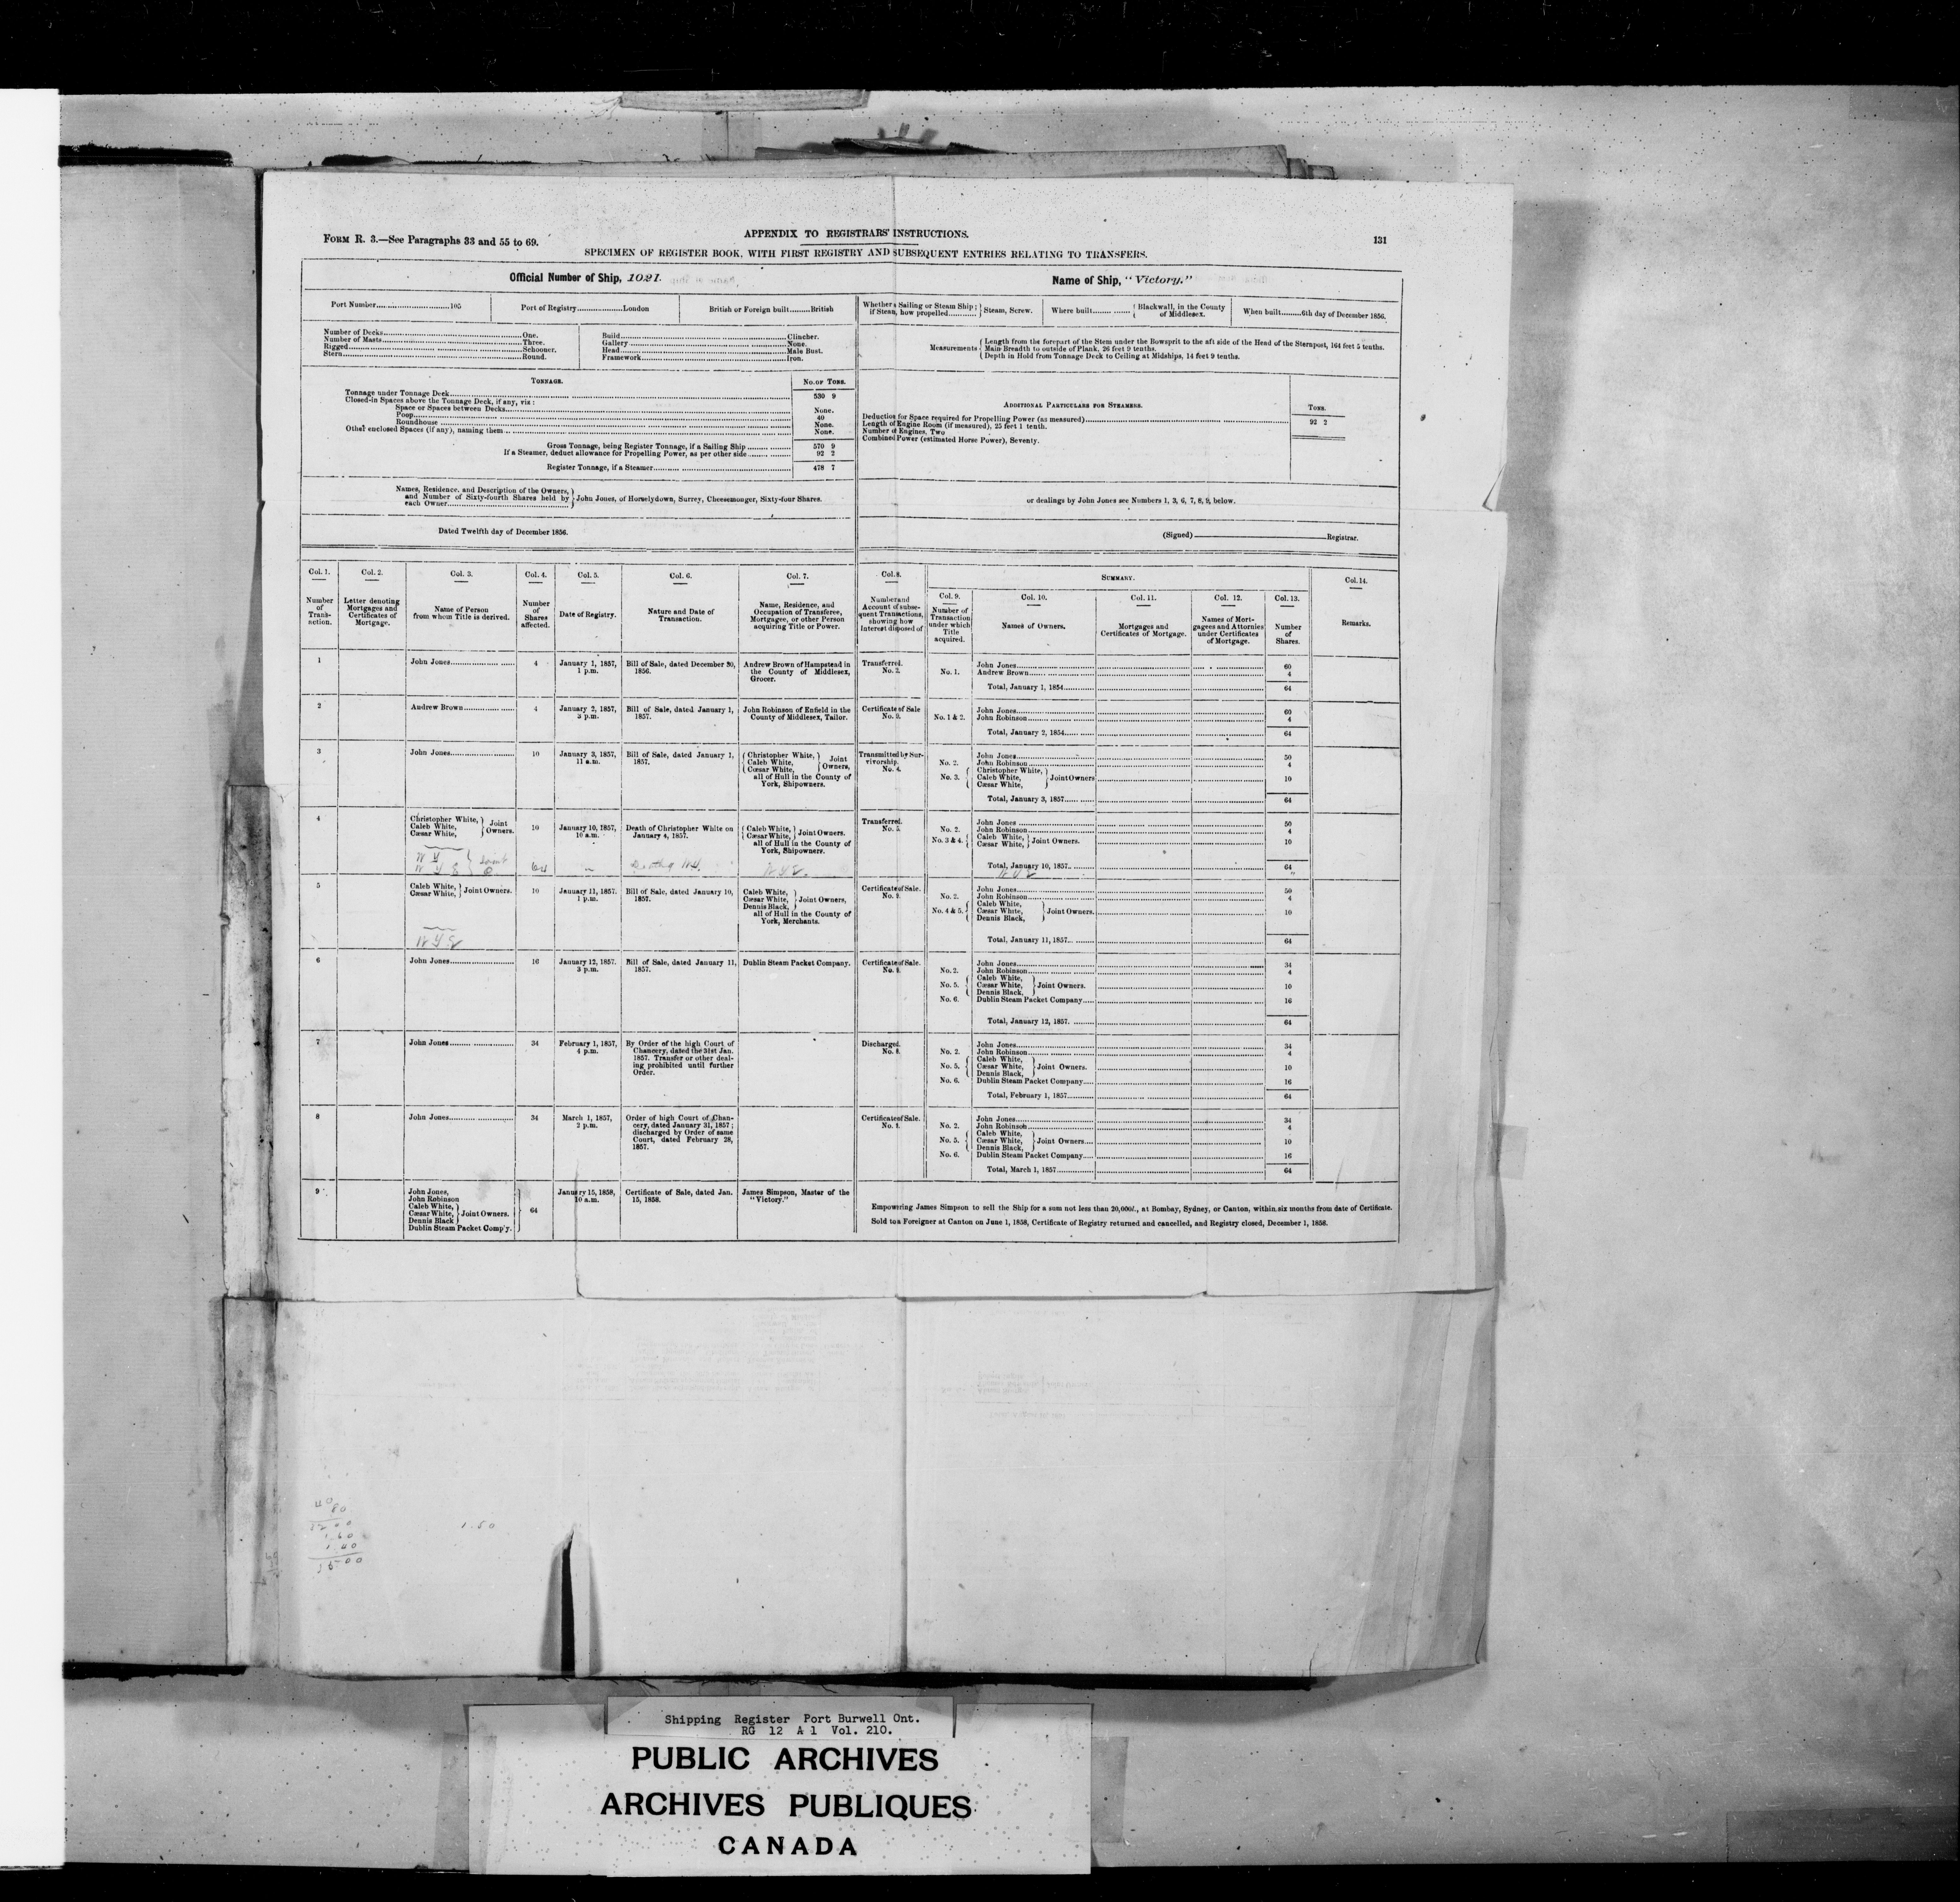 APPENDIX TO REGISTRARS' INSTRUCTIONS.
131
FORM R. 3.—See Paragraphs 33 and 55 to 69.
SPECIMEN OF REGISTER BOOK, WITH FIRST REGISTRY AND SUBSEQUENT ENTRIES RELATING TO TRANSFERS.
Official Number of Ship, 1021.
Name of Ship, "Victory."
Port Number 105
Port of Registry London
British or Foreign built British
Whether a Sailing or Steam Ship; if Steam, how propelled Steam, Screw.
Where built Blackwall, in the County of Middlesex.
When built 6th day of December 1856.
Number of Decks One.
Number of Masts Three.
Rigged Schooner.
Stern Round.
Build Clincher.
Gallery None.
Head Male Bust.
Framework Iron.
Measurements
Length from the forepart of the Stem under the Bowsprit to the aft side of the Head of the Sternpost, 164 feet 5 tenths.
Main Breadth to outside of Plank, 26 feet 9 tenths.
Depth in Hold from Tonnage Deck to Ceiling at Midships, 14 feet 9 tenths.
TONNAGE. NO. OF TONS.
Tonnage under Tonnage Deck 530 9
Closed-in Spaces above the Tonnage Deck, if any, viz:
Space or Spaces between Decks None.
Poop 40
Roundhouse None.
Other enclosed Spaces (if any), naming them None.
Gross Tonnage, being Register Tonnage, if a Sailing Ship 570 9
If a Steamer, deduct allowance for Propelling Power, as per other side 92 2
Register Tonnage, if a Steamer 478 7
ADDITIONAL PARTICULARS FOR STEAMERS. TONS.
Deduction for Space required for Propelling Power (as measured) 92 2
Length of Engine Room (if measured), 25 feet 1 tenth.
Number of Engines, Two
Combined Power (estimated Horse Power), Seventy.
Names, Residence, and Description of the Owners,
and Number of Sixty-fourth Shares held by
each Owner
John Jones, of Horselydown, Surrey, Cheesemonger, Sixty-four Shares.
or dealings by John Jones see Numbers 1, 3, 6, 7, 8, 9, below.
Dated Twelfth day of December 1856.
(Signed) Registrar.
Col. 1. Number of Transaction.
Col. 2. Letter denoting Mortgages and Certificates of Mortgage.
Col. 3. Name of Person from whom Title is derived.
Col. 4. Number of Shares affected.
Col. 5. Date of Registry.
Col. 6. Nature and Date of Transaction.
Col. 7. Name, Residence, and Occupation of Transferee, Mortgagee, or other Person acquiring Title or Power.
Col. 8. Number and Account of subsequent Transactions, showing how Interest disposed of
SUMMARY.
Col. 9. Number of Transaction under which Title acquired.
Col. 10. Names of Owners.
Col. 11. Mortgages and Certificates of Mortgage.
Col. 12. Names of Mortgagees and Attornies under Certificates of Mortgage.
Col. 13. Number of Shares.
Col. 14. Remarks.
1 John Jones 4 January 1, 1857, 1 p.m. Bill of Sale, dated December 30, 1856. Andrew Brown of Hampstead in the County of Middlesex, Grocer. Transferred. No. 2.
John Jones 60
No. 1. Andrew Brown 4
Total, January 1, 1854 64
2 Andrew Brown 4 January 2, 1857, 3 p.m. Bill of Sale, dated January 1, 1857. John Robinson of Enfield in the County of Middlesex, Tailor. Certificate of Sale No. 9.
John Jones 60
No. 1 & 2. John Robinson 4
Total, January 2, 1854 64
3 John Jones 10 January 3, 1857, 11 a.m. Bill of Sale, dated January 1, 1857. Christopher White, Caleb White, Cæsar White, Joint Owners, all of Hull in the County of York, Shipowners. Transmitted by Survivorship. No. 4.
John Jones 50
No. 2. John Robinson 4
No. 3. Christopher White, Caleb White, Cæsar White, Joint Owners 10
Total, January 3, 1857 64
4 Christopher White, Caleb White, Cæsar White, Joint Owners. 10 January 10, 1857, 10 a.m. Death of Christopher White on January 4, 1857. Caleb White, Cæsar White, Joint Owners. all of Hull in the County of York, Shipowners. Transferred. No. 5.
John Jones 50
No. 2. John Robinson 4
No. 3 & 4. Caleb White, Cæsar White, Joint Owners. 10
Total, January 10, 1857 64
64
5 Caleb White, Cæsar White, Joint Owners. 10 January 11, 1857. 1 p.m. Bill of Sale, dated January 10, 1857. Caleb White, Cæsar White, Dennis Black, Joint Owners, all of Hull in the County of York, Merchants. Certificate of Sale. No. 9.
John Jones 50
No. 2. John Robinson 4
No. 4 & 5. Caleb White, Cæsar White, Dennis Black, Joint Owners. 10
Total, January 11, 1857 64
6 John Jones 16 January 12, 1857. 3 p.m. Bill of Sale, dated January 11, 1857. Dublin Steam Packet Company. Certificate of Sale. No. 9.
John Jones 34
No. 2. John Robinson 4
No. 5. Caleb White, Cæsar White, Dennis Black, Joint Owners. 10
No. 6. Dublin Steam Packet Company 16
Total, January 12, 1857. 64
7 John Jones 34 February 1, 1857, 4 p.m. By Order of the high Court of Chancery, dated the 31st Jan. 1857. Transfer or other dealing prohibited until further Order. Discharged. No. 8.
John Jones 34
No. 2. John Robinson 4
No. 5. Caleb White, Cæsar White, Dennis Black, Joint Owners. 10
No. 6. Dublin Steam Packet Company 16
Total, February 1, 1857 64
8 John Jones 34 March 1, 1857, 2 p.m. Order of high Court of Chancery, dated January 31, 1857; discharged by Order of same Court, dated February 28, 1857. Certificate of Sale. No. 9.
John Jones 34
No. 2. John Robinson 4
No. 5. Caleb White, Cæsar White, Dennis Black, Joint Owners 10
No. 6. Dublin Steam Packet Company 16
Total, March 1, 1857 64
9 John Jones, John Robinson Caleb White, Cæsar White, Dennis Black Joint Owners. Dublin Steam Packet Comp'y. 64 January 15, 1858, 10 a.m. Certificate of Sale, dated Jan. 15, 1858. James Simpson, Master of the "Victory."
Empowering James Simpson to sell the Ship for a sum not less than 20,000l., at Bombay, Sydney, or Canton, within six months from date of Certificate.
Sold to a Foreigner at Canton on June 1, 1858, Certificate of Registry returned and cancelled, and Registry closed, December 1, 1858.
40
80
3200
1.60
1.40
1.50
Shipping Register Port Burwell Ont.
RG 12 A 1 Vol. 210.
PUBLIC ARCHIVES
ARCHIVES PUBLIQUES
CANADA